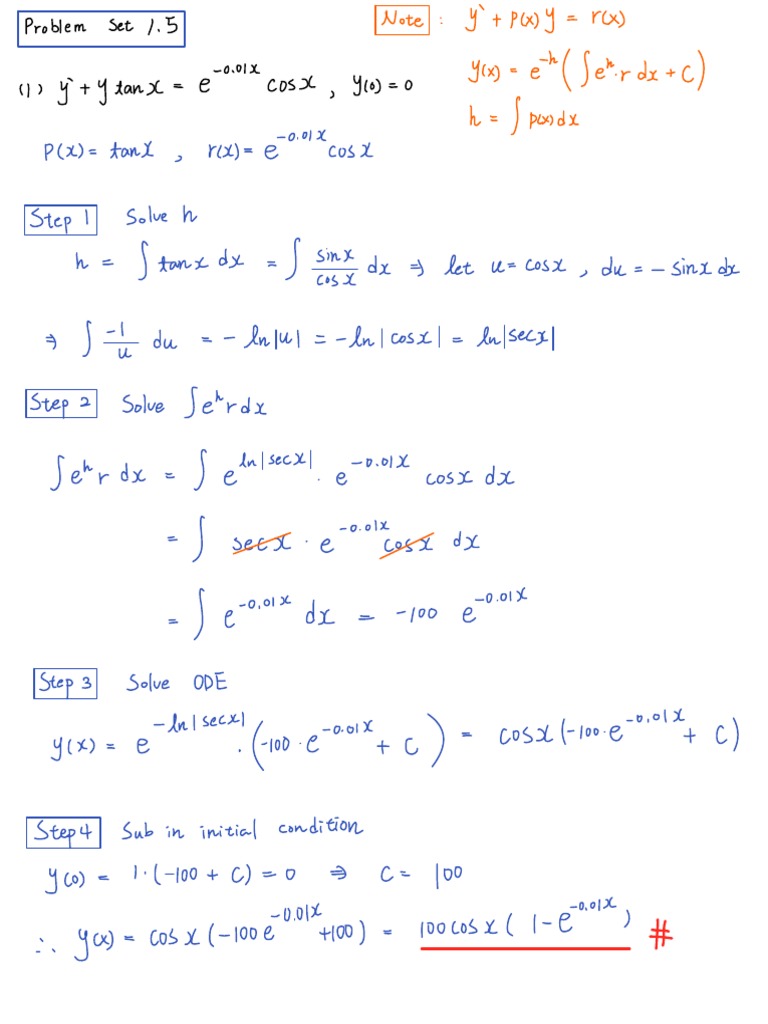 Problem Set 1.5
Note : y' + p(x) y = r(x)
y(x) = e^{-h} ( ∫ e^{h} · r dx + c )
h = ∫ p(x) dx
(1) y' + y tan x = e^{-0.01x} cos x , y(0) = 0
P(x) = tan x , r(x) = e^{-0.01x} cos x
Step 1 Solve h
h = ∫ tan x dx = ∫ sin x / cos x dx ⇒ let u = cos x , du = - sin x dx
⇒ ∫ -1/u du = - ln|u| = - ln|cos x| = ln|sec x|
Step 2 Solve ∫ e^{h} r dx
∫ e^{h} r dx = ∫ e^{ln|sec x|} · e^{-0.01x} cos x dx
= ∫ sec x · e^{-0.01x} cos x dx
= ∫ e^{-0.01x} dx = -100 e^{-0.01x}
Step 3 Solve ODE
y(x) = e^{-ln|sec x|} · ( -100 · e^{-0.01x} + C ) = cos x ( -100 · e^{-0.01x} + C )
Step 4 Sub in initial condition
y(0) = 1 · ( -100 + C ) = 0 ⇒ C = 100
∴ y(x) = cos x ( -100 e^{-0.01x} +100 ) = 100 cos x ( 1 - e^{-0.01x} ) #